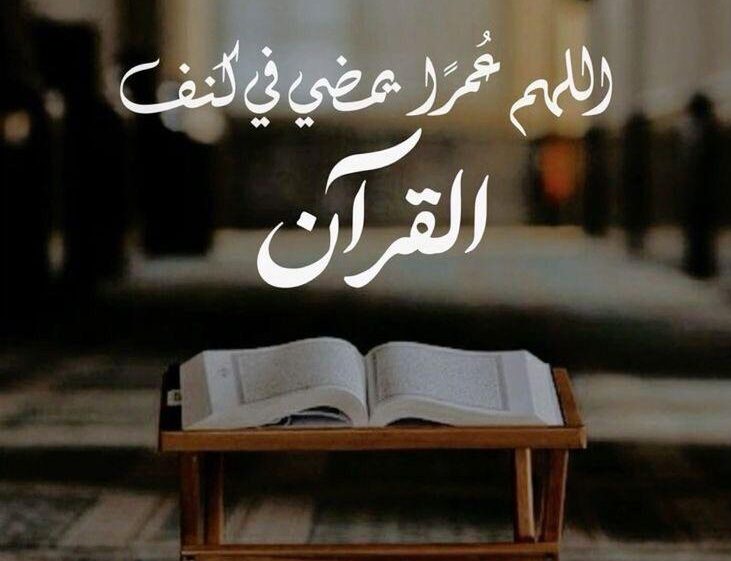 اللهم عُمرًا يمضي في كَنف
القرآن